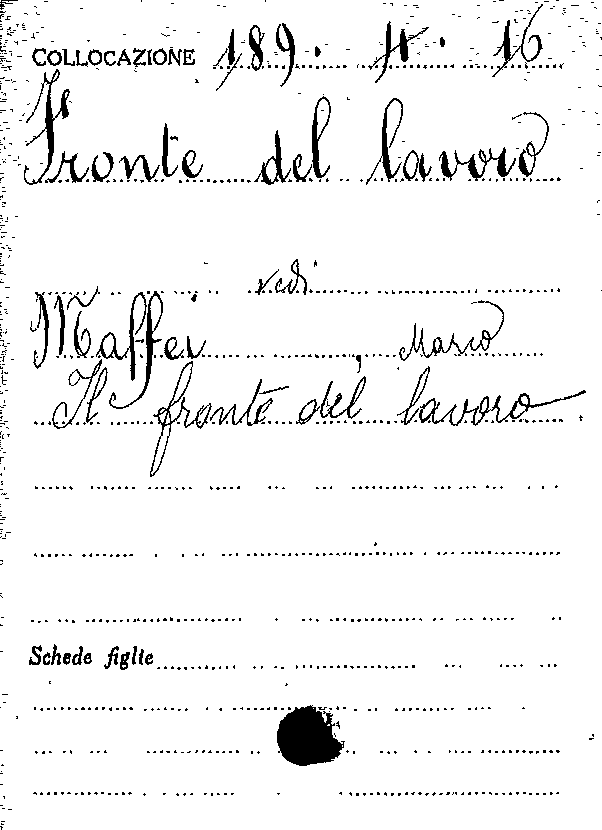 COLLOCAZIONE 189. H. 16
Fronte del lavoro
vedi
Maffei, Mario
Il fronte del lavoro.
Schede figlie